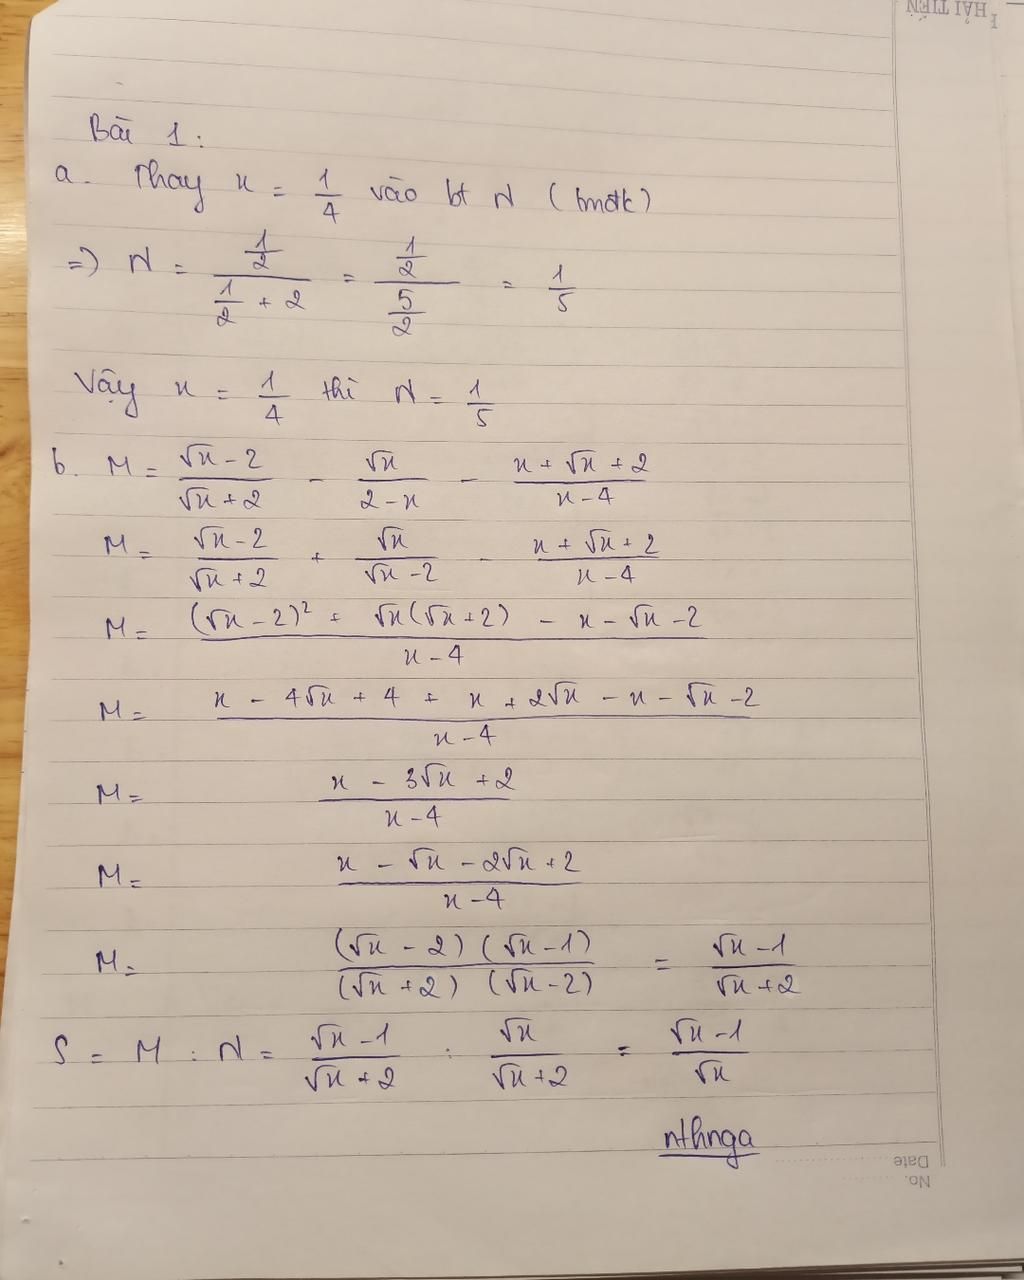 HẢI TIẾN
Bài 1:
a. Thay x = 1/4 vào bt N (tmđk)
=> N = (1/2)/(1/2 + 2) = (1/2)/(5/2) = 1/5
Vậy x = 1/4 thì N = 1/5
b. M = (√x - 2)/(√x + 2) - √x/(2 - x) - (x + √x + 2)/(x - 4)
M = (√x - 2)/(√x + 2) + √x/(√x - 2) - (x + √x + 2)/(x - 4)
M = ((√x - 2)² + √x(√x + 2) - x - √x - 2)/(x - 4)
M = (x - 4√x + 4 + x + 2√x - x - √x - 2)/(x - 4)
M = (x - 3√x + 2)/(x - 4)
M = (x - √x - 2√x + 2)/(x - 4)
M = ((√x - 2)(√x - 1))/((√x + 2)(√x - 2)) = (√x - 1)/(√x + 2)
S = M : N = (√x - 1)/(√x + 2) : √x/(√x + 2) = (√x - 1)/√x
nthnga
Date
No.